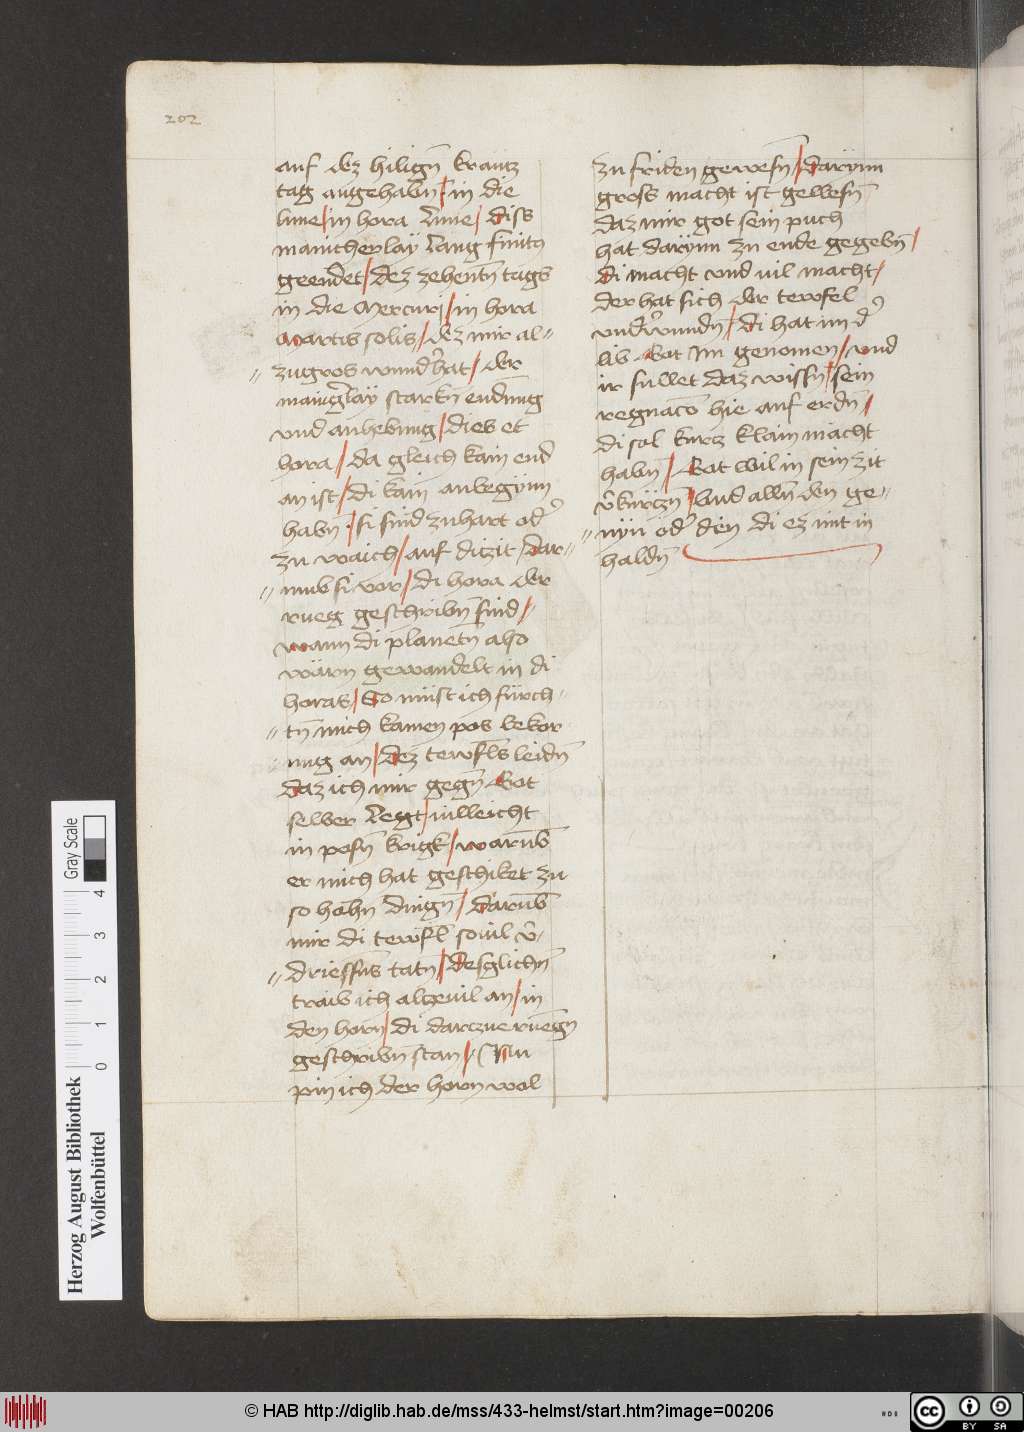 202
auf dez hilign̄ kräutz
tag angehabn̄ / in die
lune / in hora lune / diss
manicherläÿ lang finit9
geendet / dez zehentn̄ tags
in die Mercurj / in hora
Martis solis / dez mir al=
zugros wund'hat / der
manigläÿ starkn̄ endūng
vnd anhebung / dies et
hora / da gleich kain end
an ist / di kain anbegynn
habn̄ / si sind zuhart od'
zu waich / auf ditzit / dar=
umb si vor / di hora der
rueg geschribn̄ sind /
wann di planetn̄ also
wärn gewandelt in di
horas / So müst ich fürch=
tn̄ mich kämen pos bekor
ung an / dez tewfels leidn̄
daz ich mir gegn̄ Got
selber legt / villeicht
in posn̄ krigk / warūb
er mich hat geschiket zu
so hohn̄ dingn̄ / darūb
mir di tewfl souil v̄=
driessens tatn̄ / desglichn̄
traib ich alzeuil an / in
den horn / di darczue ruegn̄
geschribn̄ stan / Nu
pin ich der horn wol
zu friden gewesn̄ / darÿnn
gross macht ist gewesn̄
daz mir got sein puch
hat darÿnn zu ende gegebn̄ /
di macht vnd vil macht /
der hat sich der tewfel
vnd'wundn̄ / di hat im d'
lib Got Im genomen / vnd
ir sullet daz wissn̄ / sein
regnacō hie auf erdn̄ /
di sol kurcz klain macht
habn̄ / Got wil in sein zit
v̄kürczn̄ / Vnd alln̄ den ge=
nÿn od' den di ez mit in
haldn̄
Gray Scale
0 1 2 3 4
Herzog August Bibliothek
Wolfenbüttel
© HAB http://diglib.hab.de/mss/433-helmst/start.htm?image=00206
cc BY SA